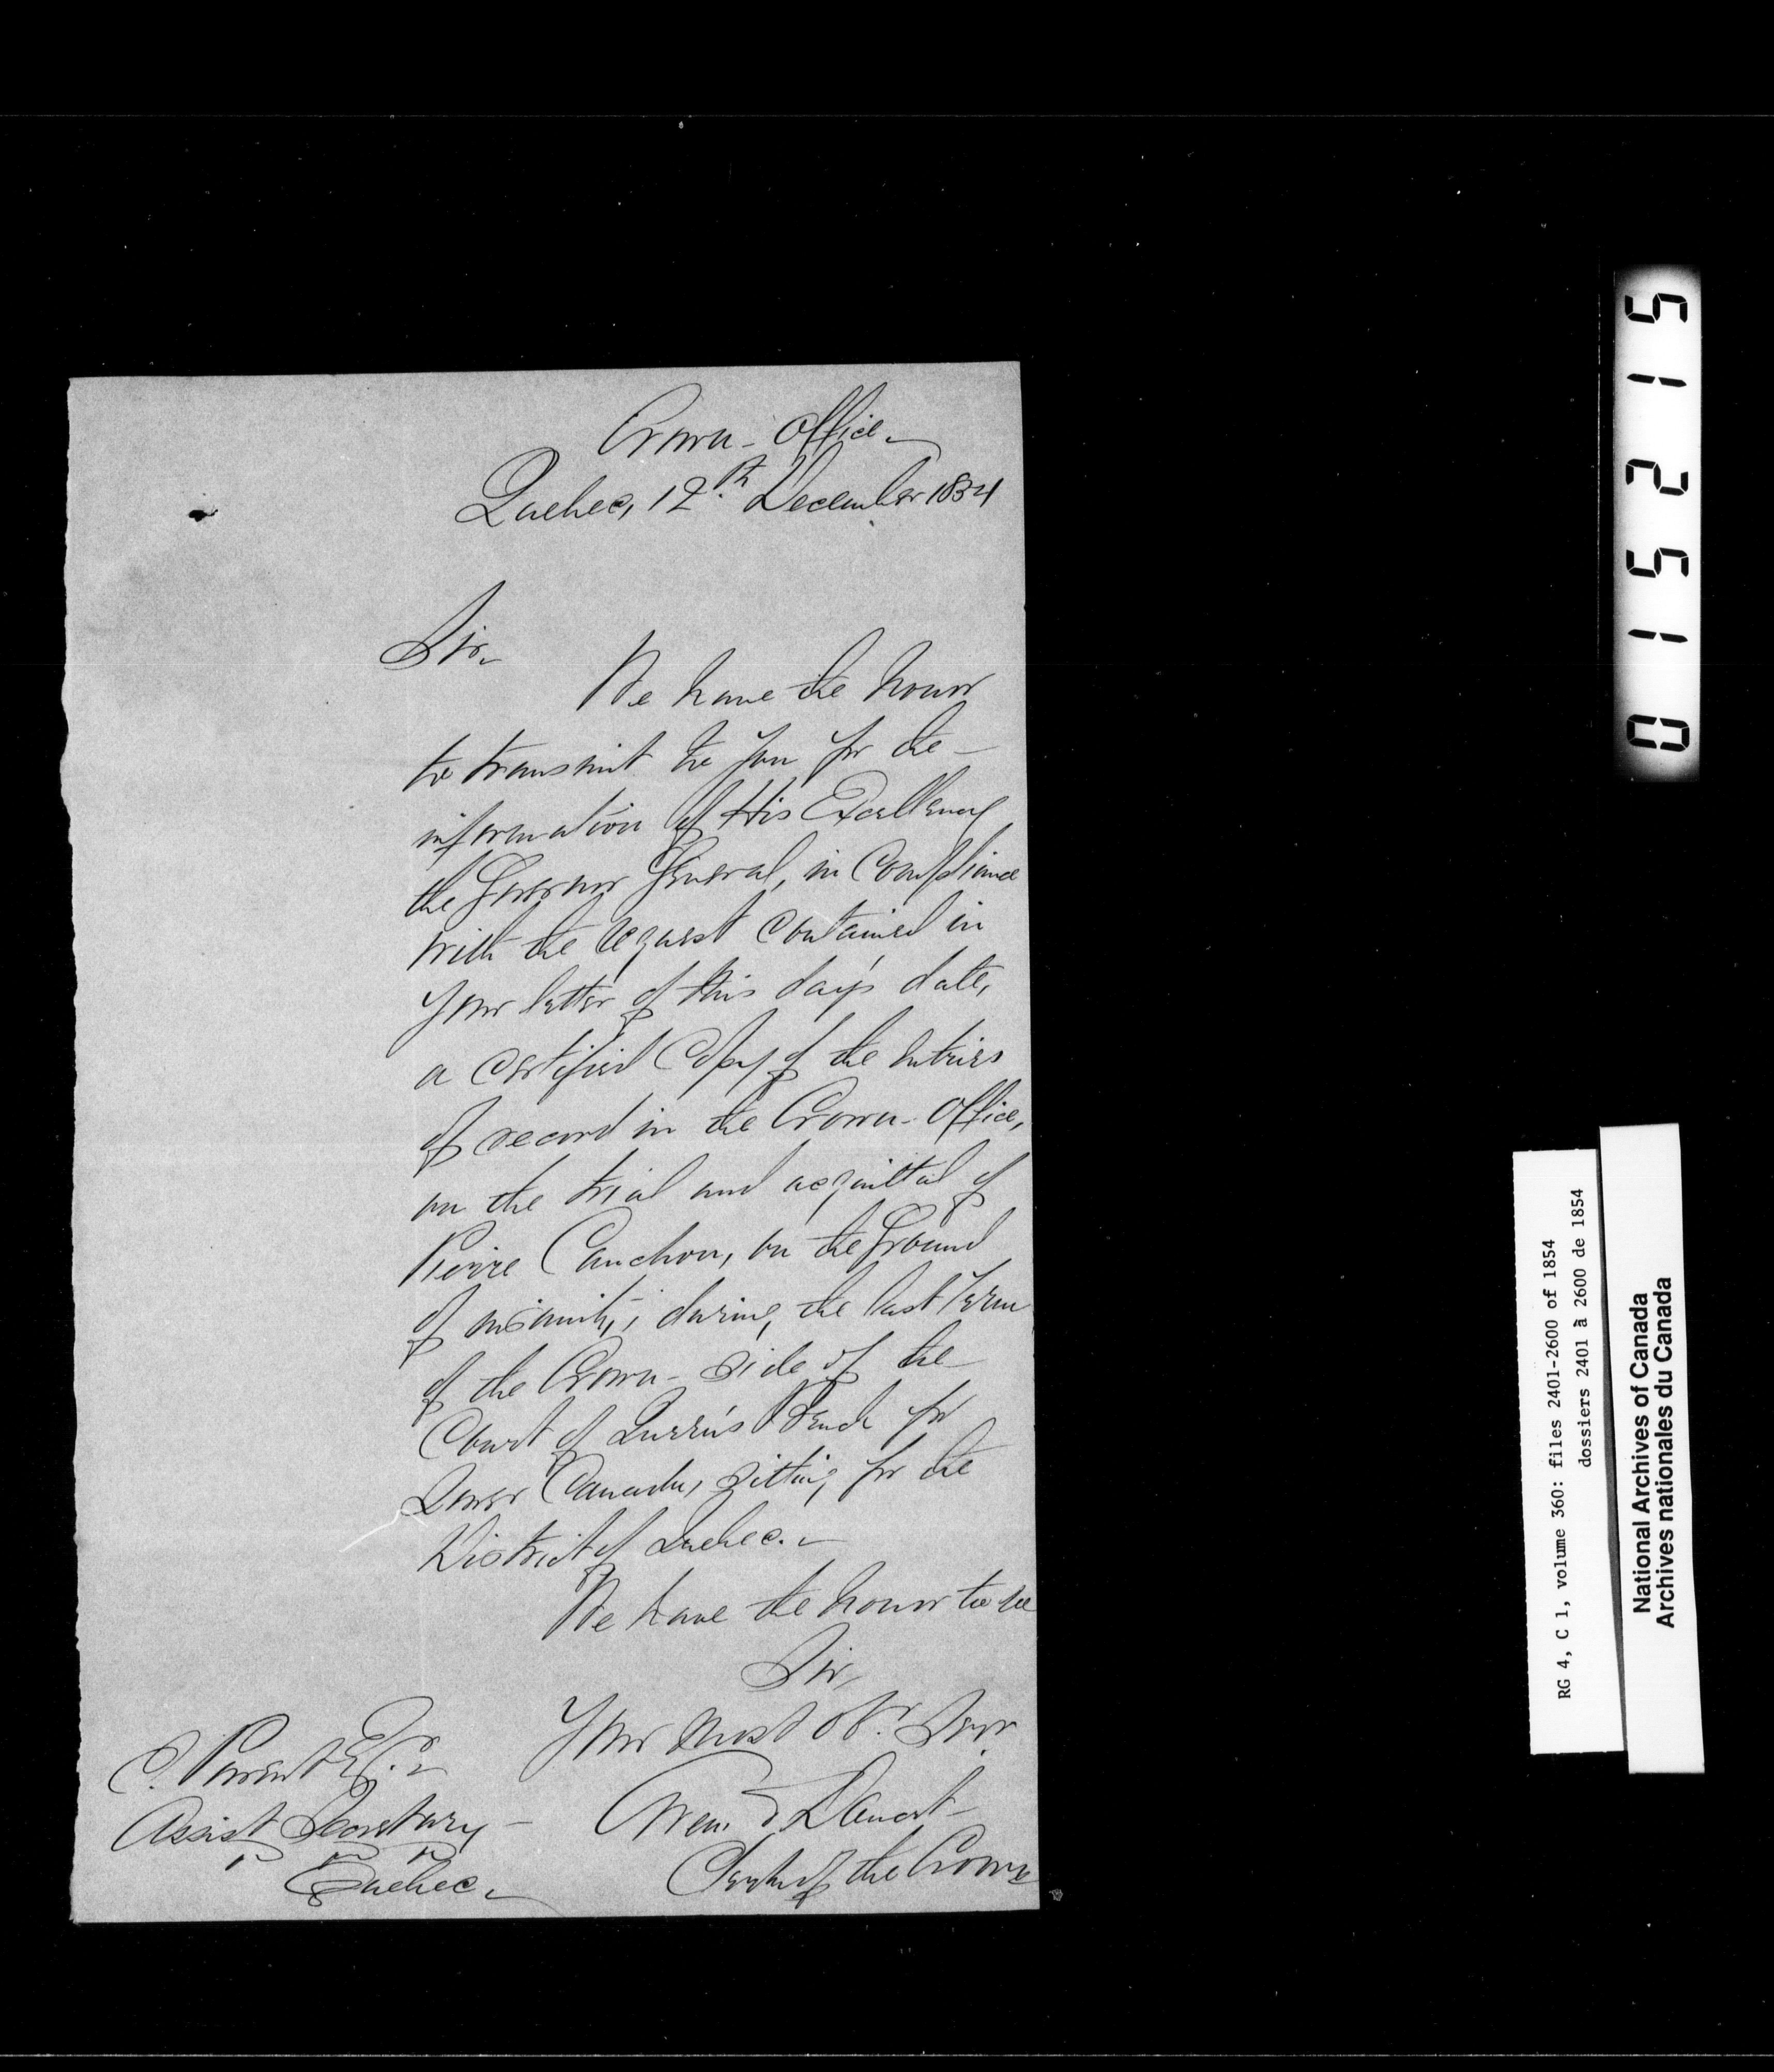 Crown-Office
Quebec, 12th December 1854
Sir,
We have the honor
to transmit to you for the
information of His Excellency
the Governor General, in compliance
with the request contained in
your letter of this day's date,
a certified Copy of the entries
of record in the Crown-Office,
on the trial and acquittal of
Pierre Cauchon, on the ground
of insanity, during the last Term
of the Crown-Side of the
Court of Queen's Bench for
Lower Canada, sitting for the
District of Quebec.
We have the honor to be
Sir,
Your most Obt. Serv
Clerk of the Crown
Parent Esqr.
Assist Secretary
Quebec
015215
RG 4, C 1, volume 360: files 2401-2600 of 1854
dossiers 2401 à 2600 de 1854
National Archives of Canada
Archives nationales du Canada